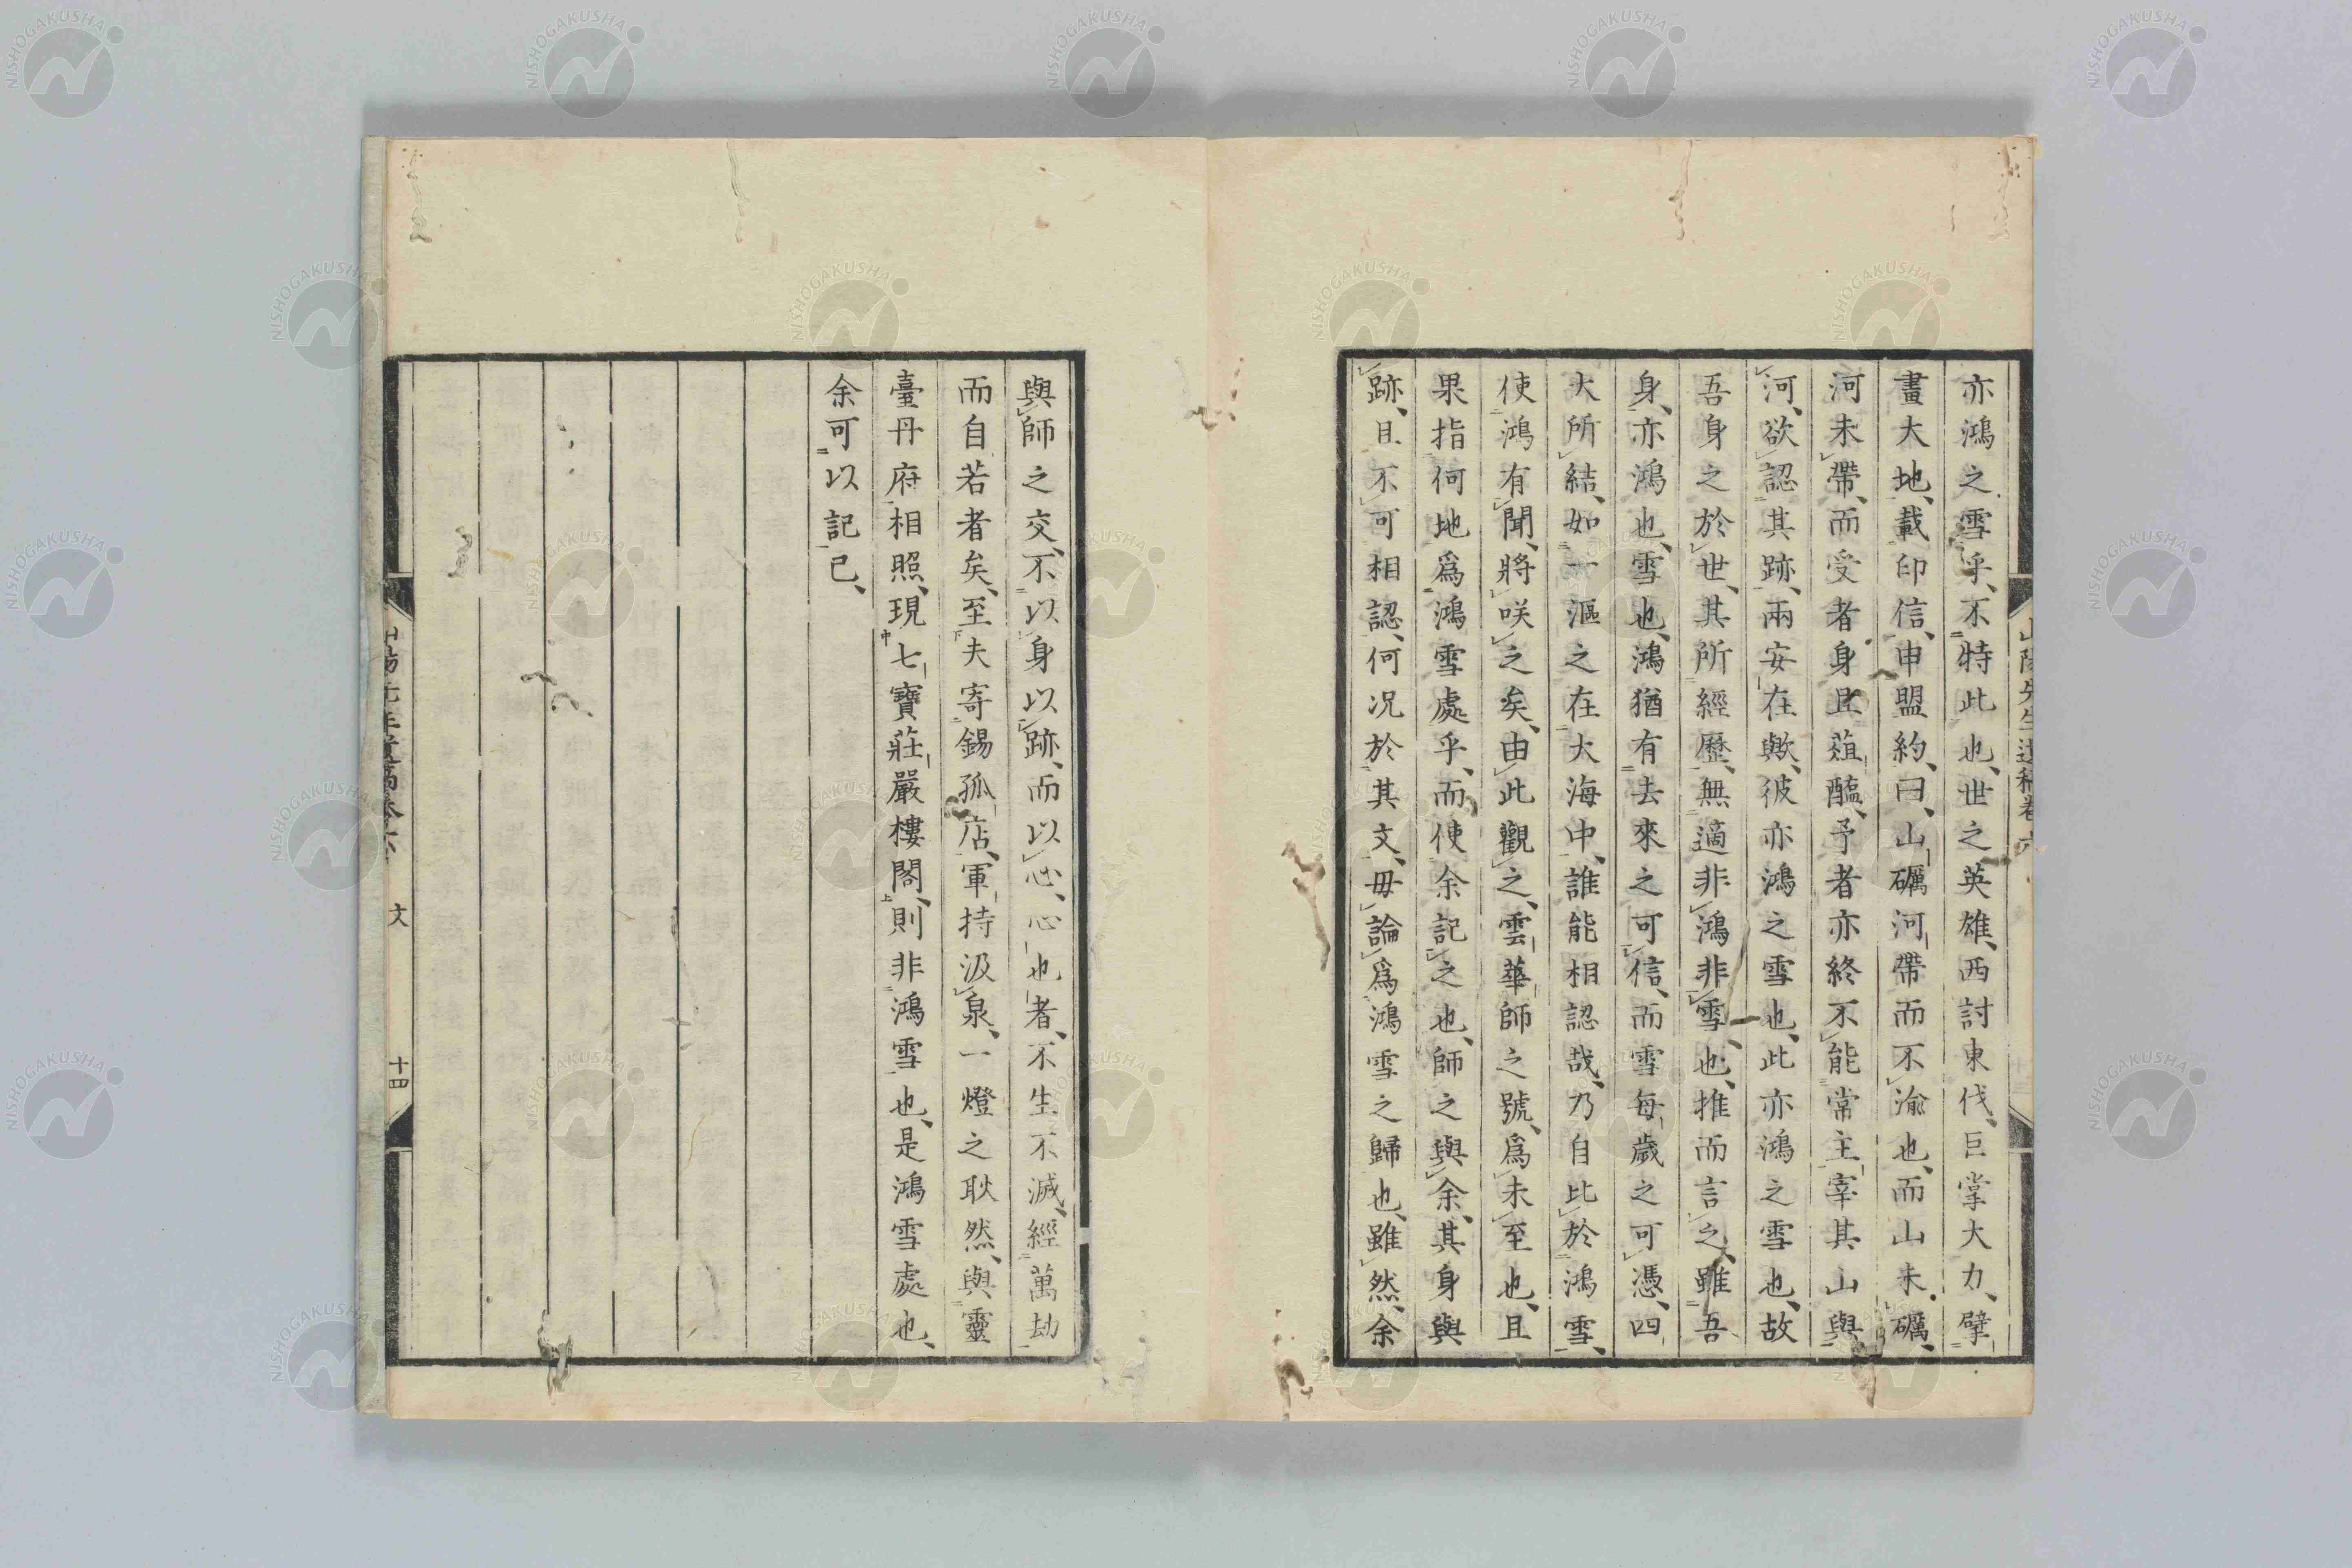 亦鴻之雪乎、不特此也、世之英雄、西討東伐、巨掌大力、擘
畫大地、載印信、申盟約、曰、山礪河帶而不渝也、而山未礪、
河未帶、而受者身且葅醢、予者亦終不能常主宰其山與
河、欲認其跡、兩安在歟、彼亦鴻之雪也、此亦鴻之雪也、故
吾身之於世、其所經歷、無適非鴻非雪也、推而言之、雖吾
身、亦鴻也、雪也、鴻猶有去來之可信、而雪每歲之可憑、四
大所結、如一漚之在大海中、誰能相認哉、乃自比於鴻雪、
使鴻有聞、將咲之矣、由此觀之、雲華師之號、爲未至也、且
果指何地爲鴻雪處乎、而使余記之也、師之與余、其身與
跡、且不可相認、何況於其文、毋論爲鴻雪之歸也、雖然、余
山陽先生遺稿卷六
與師之交、不以身以跡、而以心、心也者、不生不滅、經萬劫
而自若者矣、至夫寄錫孤店、軍持汲泉、一燈之耿然、與靈
臺丹府相照、現七寶莊嚴樓閣、則非鴻雪也、是鴻雪處也、
余可以記已、
山陽先生遺稿卷六 文 十四
NISHOGAKUSHA